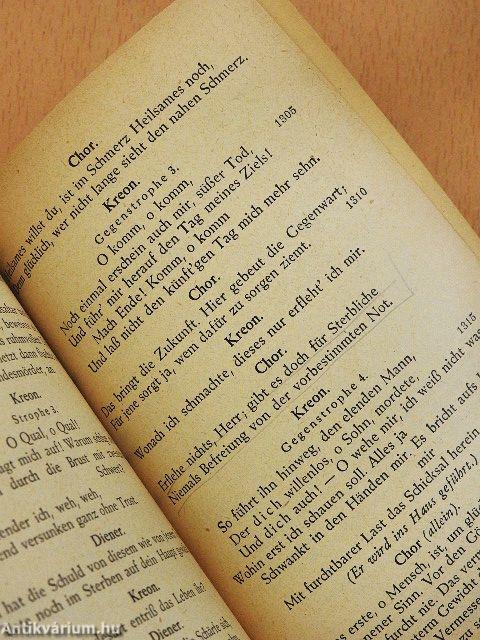 Chor.
willst du, ist im Schmerz Heilsames noch,
glücklich, wer nicht lange sieht den nahen Schmerz.
Kreon.
Gegenstrophe 3.
O komm, o komm, 1305
Noch einmal erschein auch mir, süßer Tod,
Und führ' mir herauf den Tag meines Ziels!
Mach Ende! Komm, o komm
Und laß nicht den künft'gen Tag mich mehr sehn.
Chor.
Das bringt die Zukunft. Hier gebeut die Gegenwart; 1310
Für jene sorgt ja, wem dafür zu sorgen ziemt.
Kreon.
Wonach ich schmachte, dieses nur erfleht' ich mir.
Chor.
Erflehe nichts, Herr; gibt es doch für Sterbliche
Niemals Befreiung von der vorbestimmten Not.
Kreon.
Gegenstrophe 4.
So fährt ihn hinweg, den elenden Mann, 1315
Der dich willenlos, o Sohn, mordete,
Und dich auch! — O wehe mir, ich weiß nicht was
Wohin erst ich schauen soll. Alles ja
Schwankt in den Händen mir. Es bricht aufs
mir
Mit furchtbarer Last das Schicksal herein
(Er wird ins Haus geführt.)
Chor (allein).
erste, o Mensch, ist, um
Sinn. Vor den
furcht nie. Das
Gewicht
Kreon.
Strophe 3.
O Qual, o Qual!
mich auf! Warum
durch die Brust mit
Schwert?
ich, weh, weh,
versunken ganz ohne Trost.
Diener.
hat die Schuld von diesem wie von
noch im Sterben auf dein Haupt
Kreon.
entriß das Leben ihr?
Antikvárium.hu